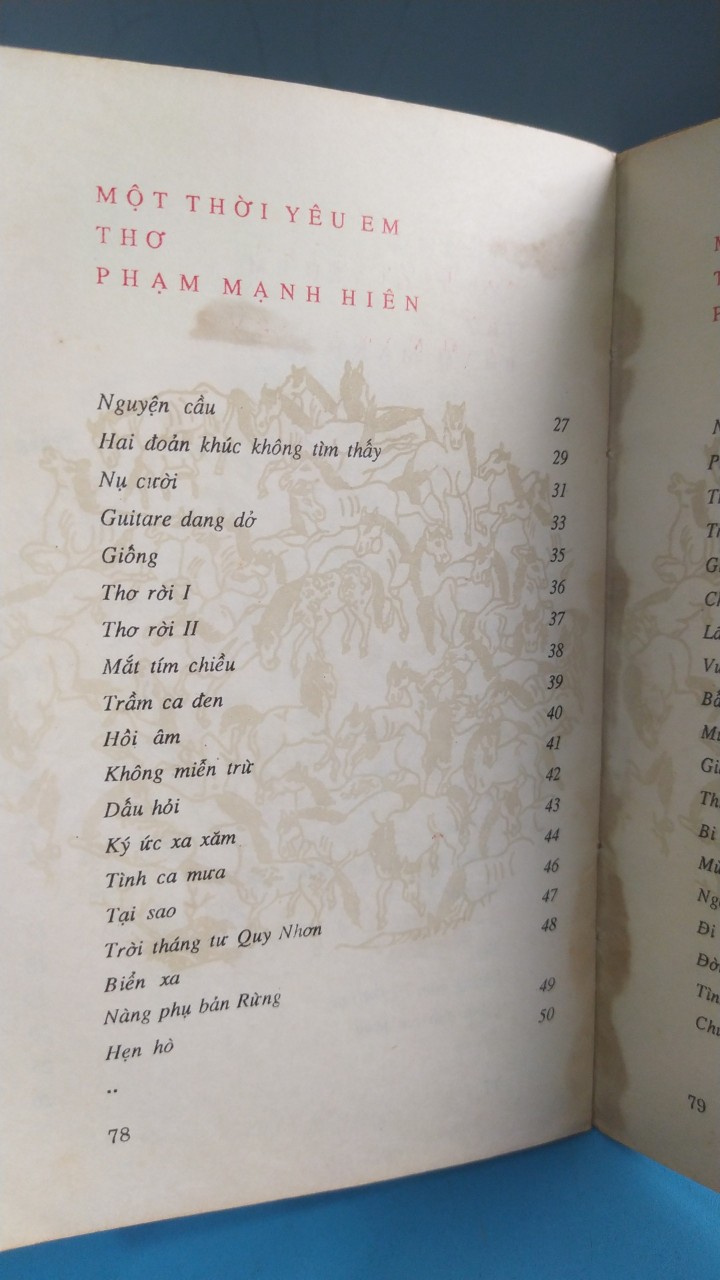 MỘT THỜI YÊU EM
THƠ
PHẠM MẠNH HIÊN
Nguyện cầu 27
Hai đoản khúc không tìm thấy 29
Nụ cười 31
Guitare dang dở 33
Giống 35
Thơ rời I 36
Thơ rời II 37
Mắt tím chiều 38
Trầm ca đen 39
Hồi âm 40
Không miễn trừ 41
Dấu hỏi 42
Ký ức xa xăm 43
Tình ca mưa 44
Tại sao 46
Trời tháng tư Quy Nhơn 47
Biển xa 48
Nàng phụ bản Rừng 49
Hẹn hò 50
..
78
Bi
Đi
79